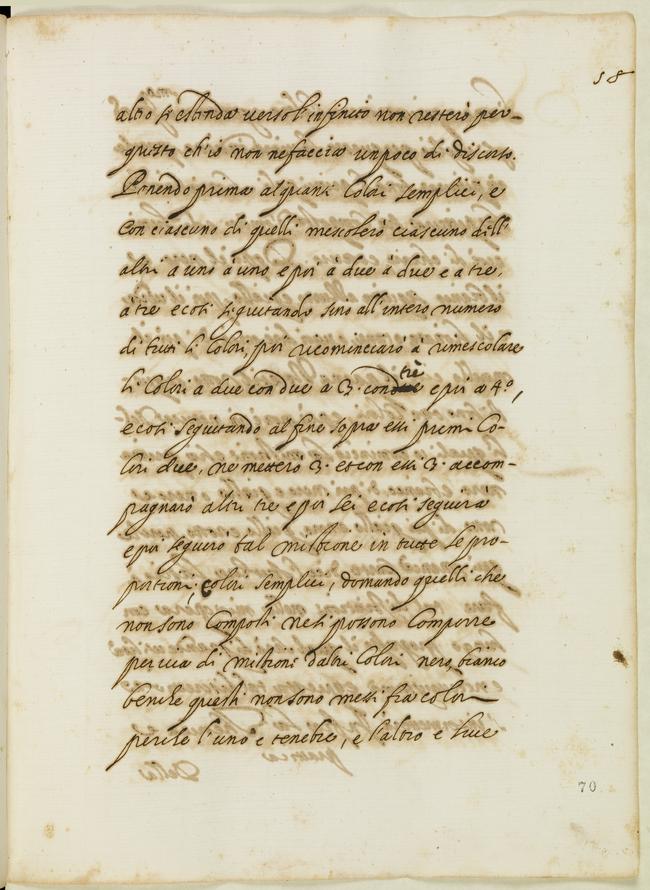 58
altro si estenda verso l'infinito non restero per-
questo ch'io non ne faccia un poco di discorso.
Ponendo prima alquanti Colori semplici, e
con ciascuno di quelli mescolerò ciascuno dell'
altri a uno a uno e poi à due à due e a tre,
à tre e cosi seguitando sino all'intero numero
di tutti li Colori, poi ricominciarò à rimescolare
li Colori a due con due a 3. con tre e poi a 4º,
e cosi seguitando al fine sopra essi primi Co-
lori due, ne metterò 3. et con essi 3. accom-
pagnarò altri tre e poi sei e cosi seguirà
e poi seguirò tal mistione in tutte le pro-
portioni, Colori semplici, domando quelli che
non sono Composti ne si possono Comporre
per via di mistioni d'altri Colori nero, bianco
benche questi non sono messi fra colori
perche l'uno è tenebre, e l'altro è luce
70